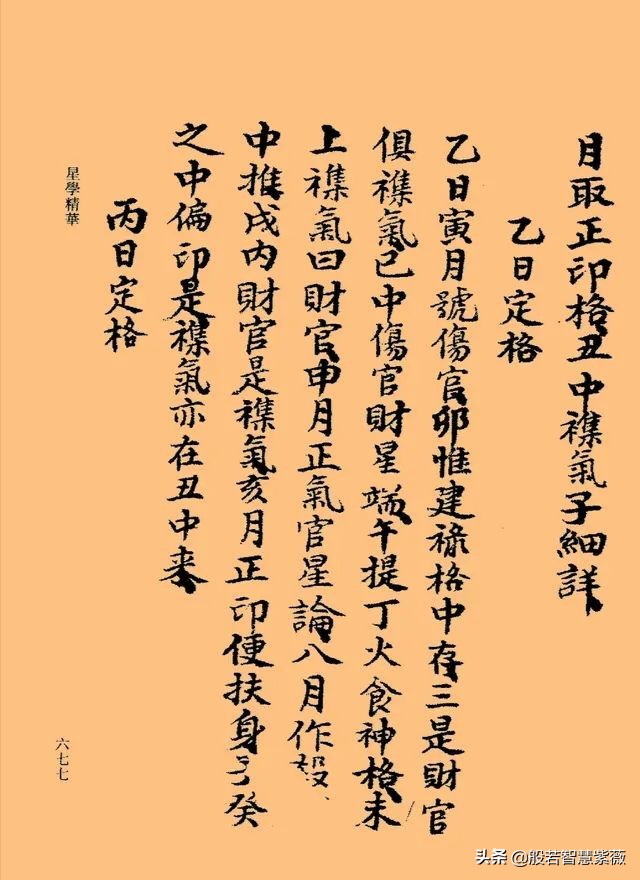 月取正印格丑中襍氣子細詳
乙日定格
乙日寅月號傷官卯惟建祿格中存三是財官
俱襍氣巳中傷官財星端午提丁火食神格未
上襍氣曰財官申月正氣官星論八月作殺
中推戌内財官是襍氣亥月正印便扶身子癸
之中偏印是襍氣亦在丑中来
丙日定格
星學精華
六七七
头条 @般若智慧紫薇